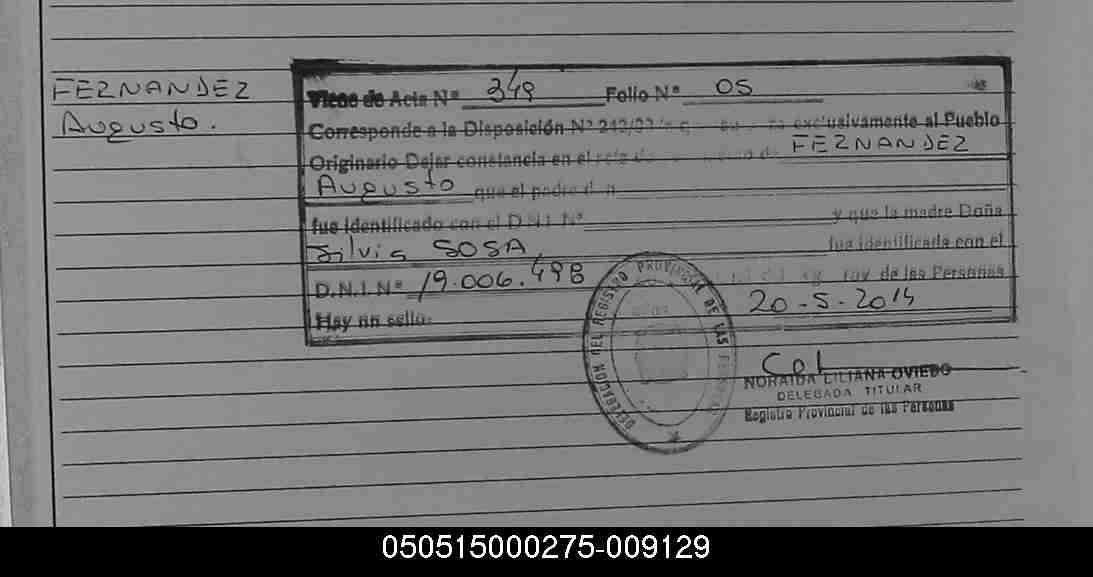 FERNANDEZ
Augusto.
Viene de Acta Nº 349 Folio Nº 05
Corresponde a la Disposición Nº exclusivamente al Pueblo
Originario Dejar constancia en el FERNANDEZ
Augusto que el padre
fue identificado con el D.N.I. Nº y que la madre Doña
Silvia SOSA, fue identificada con el
D.N.I. Nº 19.006.498 de las Personas
20-5-2014
Hay un sello.
DELEGACION DEL REGISTRO PROVINCIAL DE LAS
NORAIDA LILIANA OVIEDO
DELEGADA TITULAR
Registro Provincial de las Personas
050515000275-009129